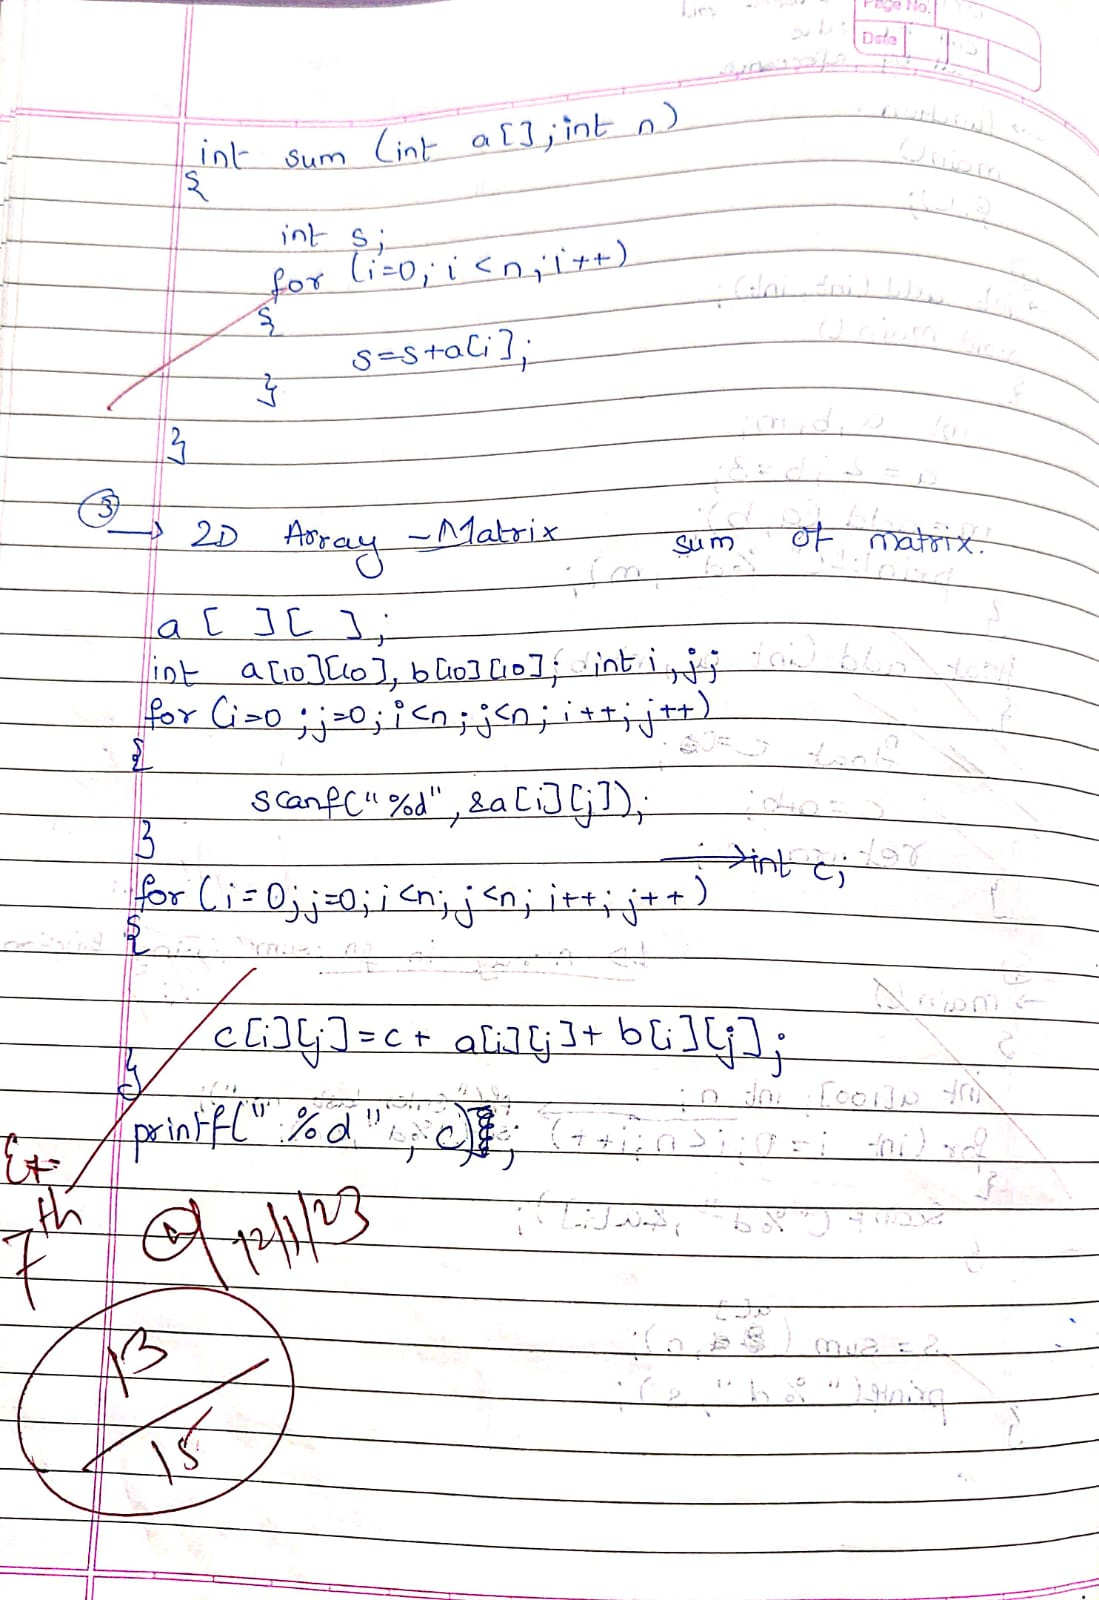 Page No.
Date
int sum (int a[]; int n)
{
int s;
for (i=0; i<n; i++)
{
s=s+a[i];
}
}
③ → 2D Array - Matrix sum of matrix.
a [ ] [ ];
int a[10][10], b[10][10]; int i, j;
for (i=0; j=0; i<n; j<n; i++; j++)
{
scanf("%d", &a[i][j]);
}
→ int c;
for (i=0; j=0; i<n; j<n; i++; j++)
{
c[i][j]=c+ a[i][j]+ b[i][j];
}
printf(" %d ", c);
7th
12/1/23
13
15